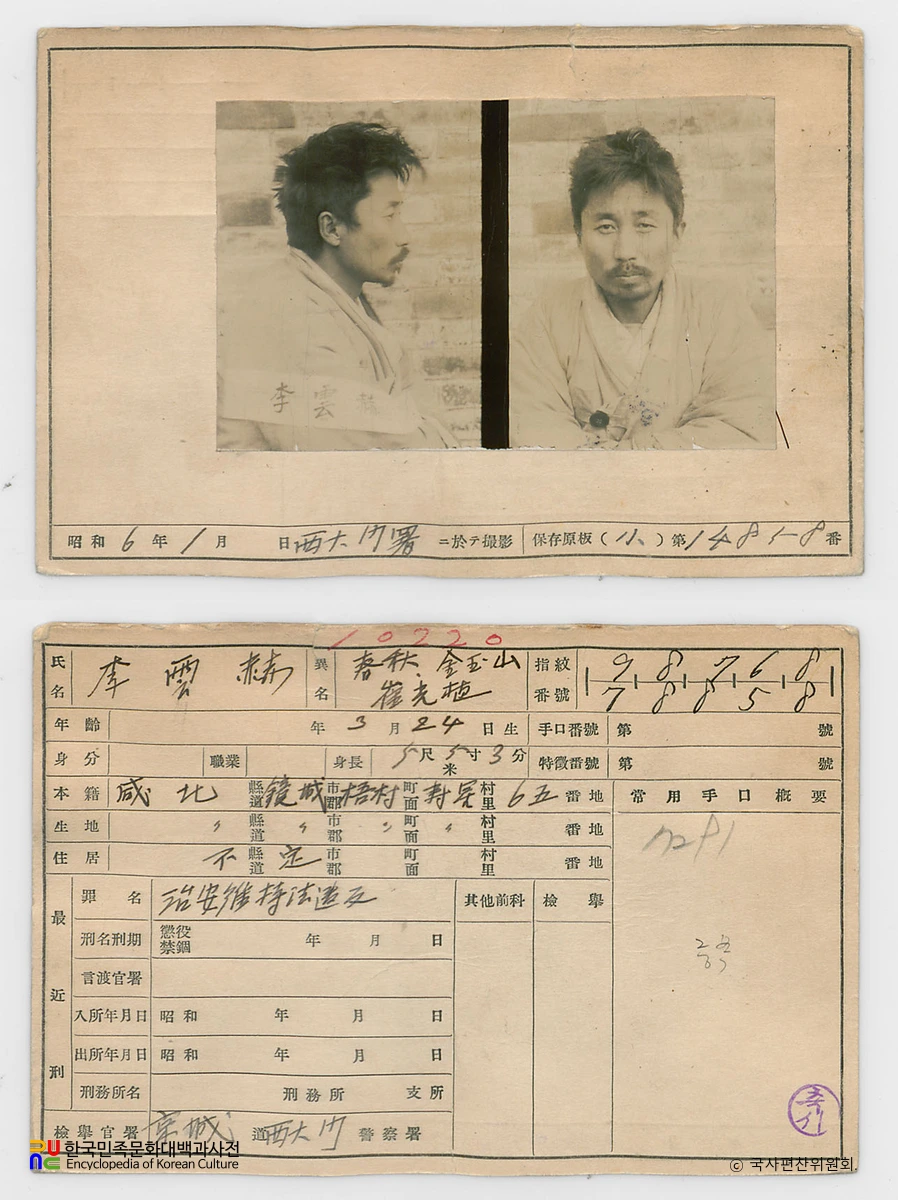 李雲赫
昭和6年1月 日西大門署ニ於テ撮影 保存原板(小)第 番
10220
氏名 李雲赫 異名 春秋、金玉山 指紋番號 9 8 7 6 8
崔光植 7 8 8 5 8
年齡 年3月24日生 手口番號 第 號
身分 職業 身長 5尺5寸3分 米 特徵番號 第 號
本籍 咸北 縣道 鏡城 市郡 梧村 町面 村里 6五 番地 常用手口概要
生地 〃 縣道 〃 市郡 〃 町面 〃 村里 番地
住居 不 縣道 定 市郡 町面 村里 番地
最近刑
罪名 治安維持法違反 其他前科 檢擧
刑名刑期 懲役 禁錮 年 月 日
言渡官署
入所年月日 昭和 年 月 日
出所年月日 昭和 年 月 日
刑務所名 刑務所 支所
檢擧官署 京城 道 西大門 警察署
한국민족문화대백과사전
Encyclopedia of Korean Culture
© 국사편찬위원회.